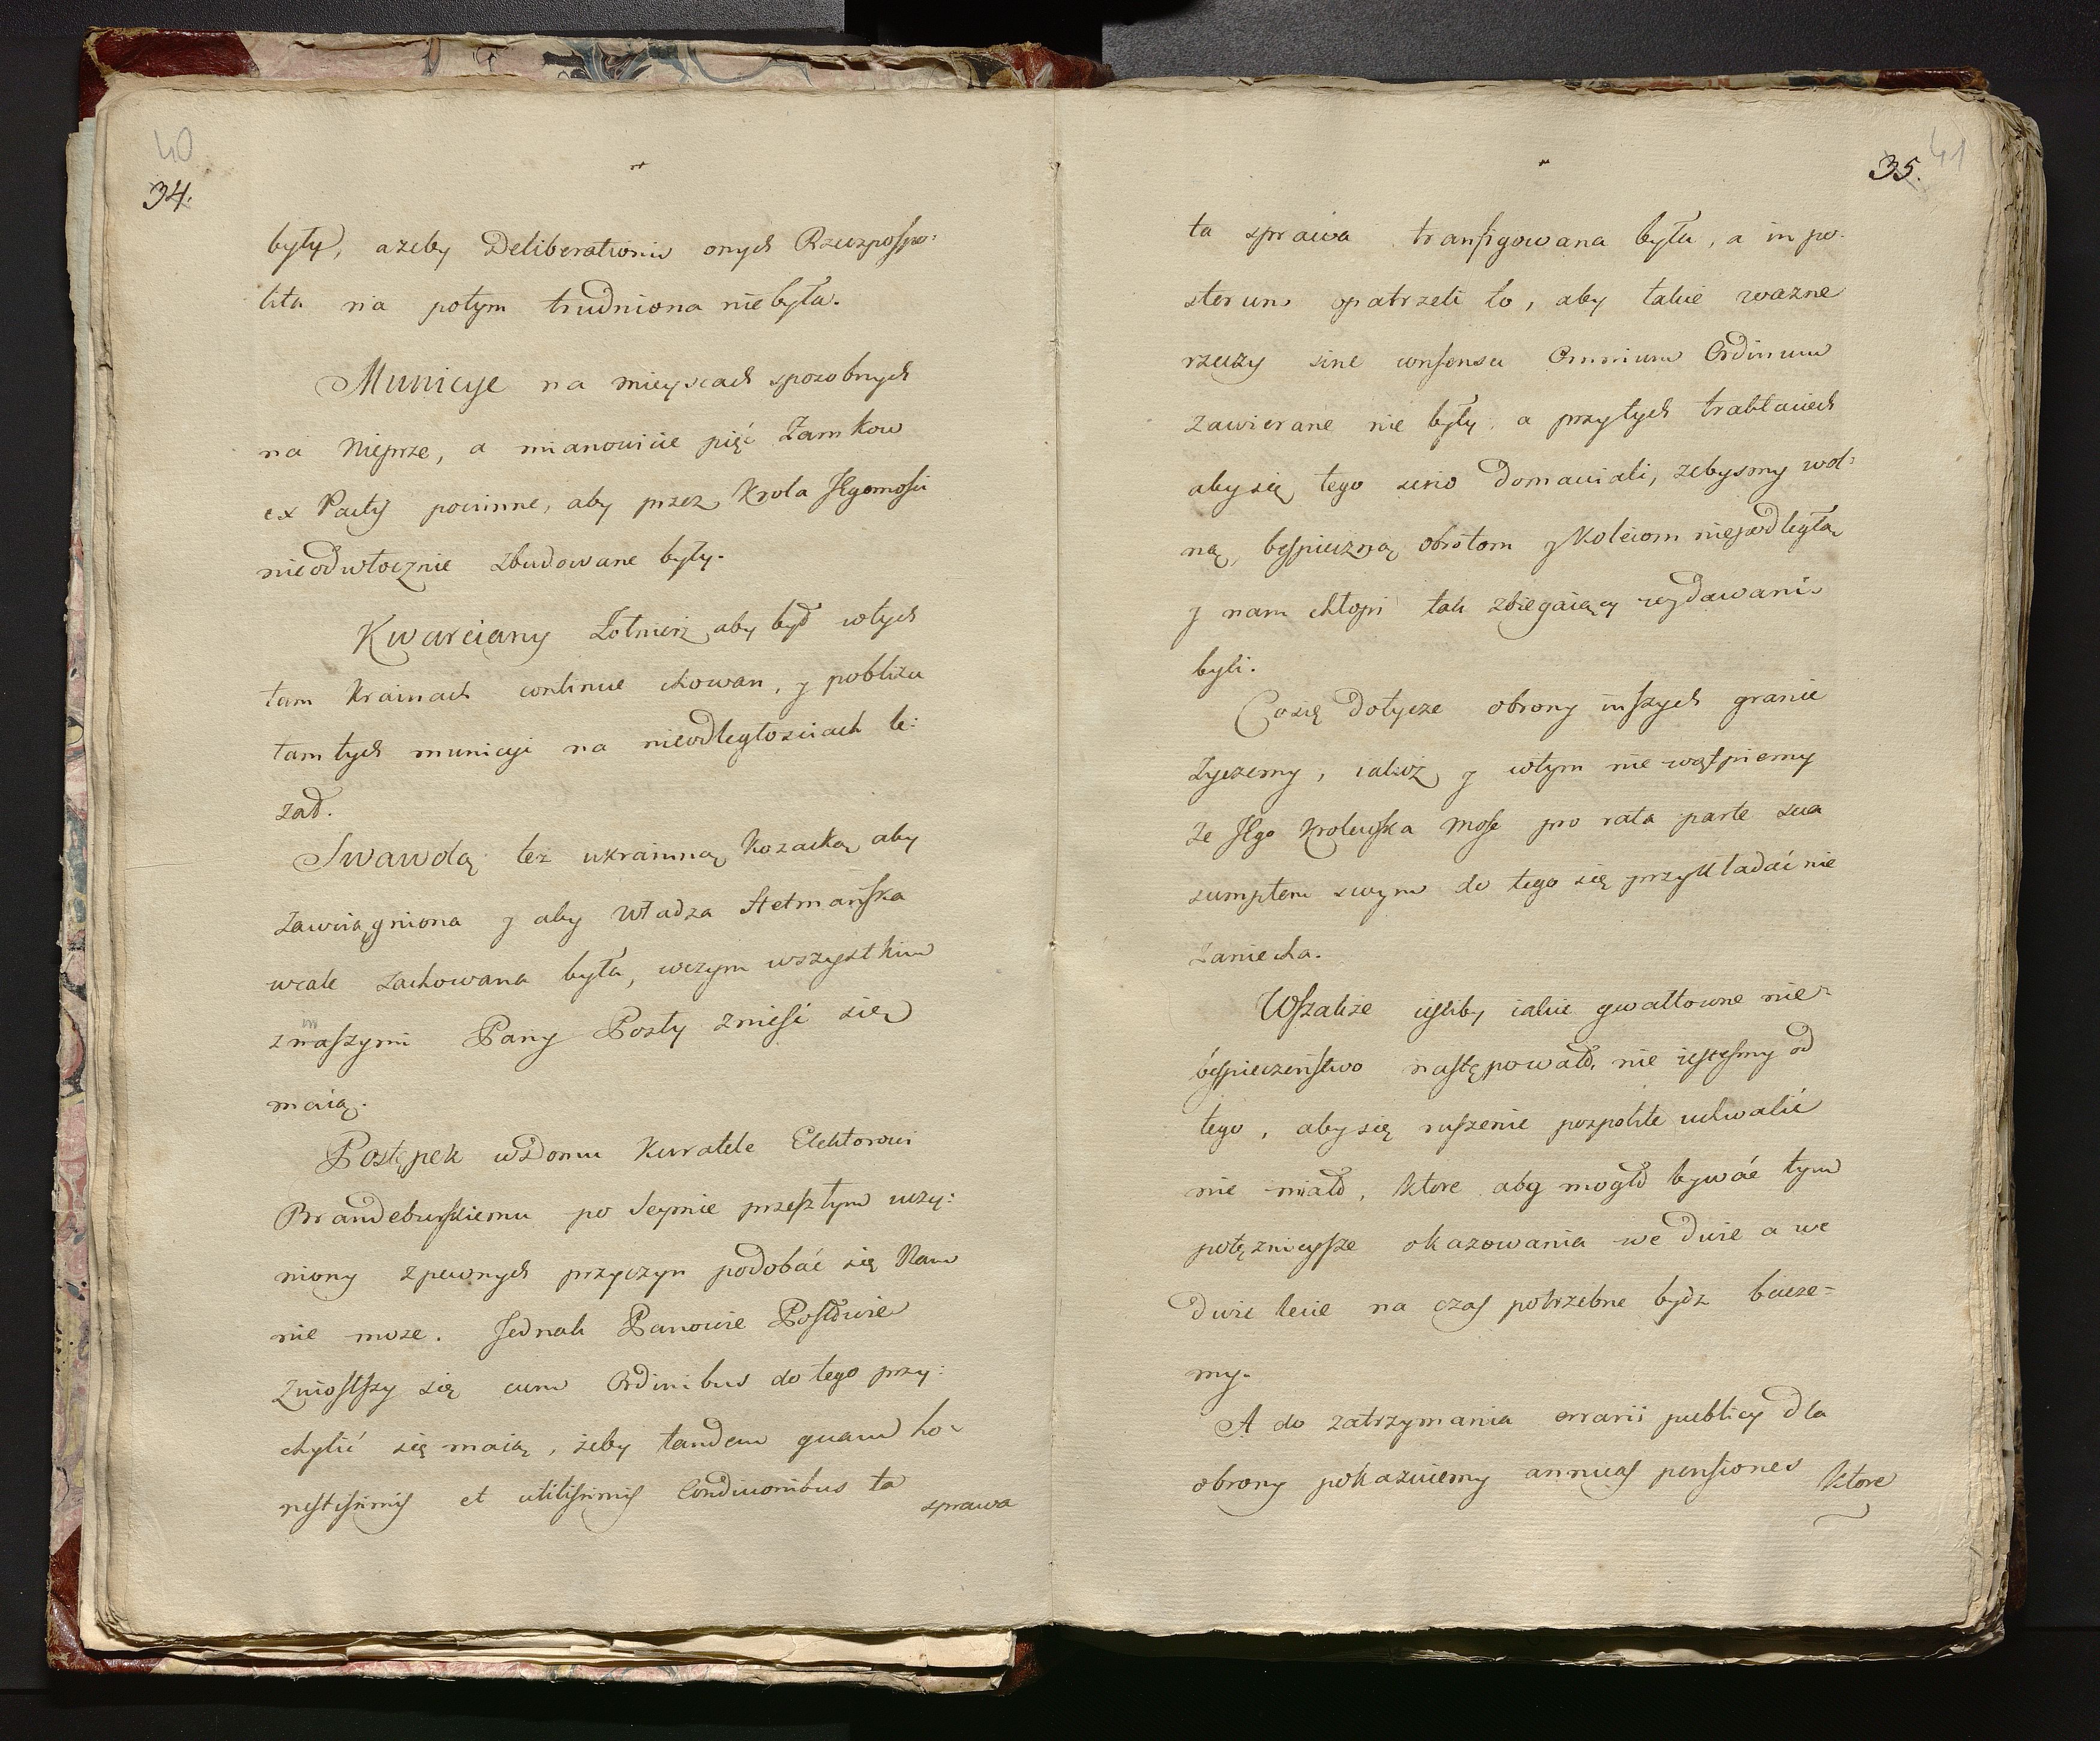 40
34.
były, azeby Deliberationis onych Rzeczpospo:
lita na potym trudniona nie była.
Municye na mieyscach sposobnych
na Nieprze, a mianowicie pięć Zamkow
ex Pactis powinne, aby przez Krola JEgomości
nieodwłocznie zbudowane były.
Kwarciany Zołnierz aby był w tych
tam Krainach continue chowan, y pobliżu
tamtych municyi na nieodległościach le:
zał.
Swawolą tez ukrainną Kozacką aby
zawciągniona y aby Władza Hetmańska
wcale zachowana była, wczym wszystkim
z naszymi Pany Posły znieść się
maią.
Postępek wzdomu Kuratele Elektorowi
Brandeburskiemu po Seymie przeszłym uczy:
niony z pewnych przyczyn podobać się Nam
nie moze. Jednak Panowie Posłowie
zniosszy się cum Ordinibus do tego przy:
chylić się maią, żeby tandem quam ho-
nestissimis et utilissimis Condicionibus ta
sprawa
41
35.
ta sprawa transigowana była, a in po-
sterum opatrzeli to, aby takie wazne
rzeczy sine consensu Omnium Ordinum
zawierane nie były, a przytych traktaciech
aby się tego serio domawiali, zebysmy wol-
ną, bespieczną obrotom y Kolciom niepodległą
y nam chłopi tak zbiegaiący wydawani
byli.
Co się dotycze obrony inszych granic
zyczemy, iakoż y wtym nie wątpiemy
ze JEgo Krolewska Mość pro rata parte sua
sumptem swym do tego się przykładać nie
zaniecha.
Wszakże iesliby iakie gwałtowne nie-
bespieczeństwo następowało, nie iestesmy od
tego, aby się ruszenie pospolite uchwalić
nie miało, ktore aby mogło bywać tym
potęznieysze okazowania we dwie a we
dwie lecie na czas potrzebne bydz bacze-
my.
A do zatrzymania errarii publicy dla
obrony pokazuiemy annuas pensiones
ktore